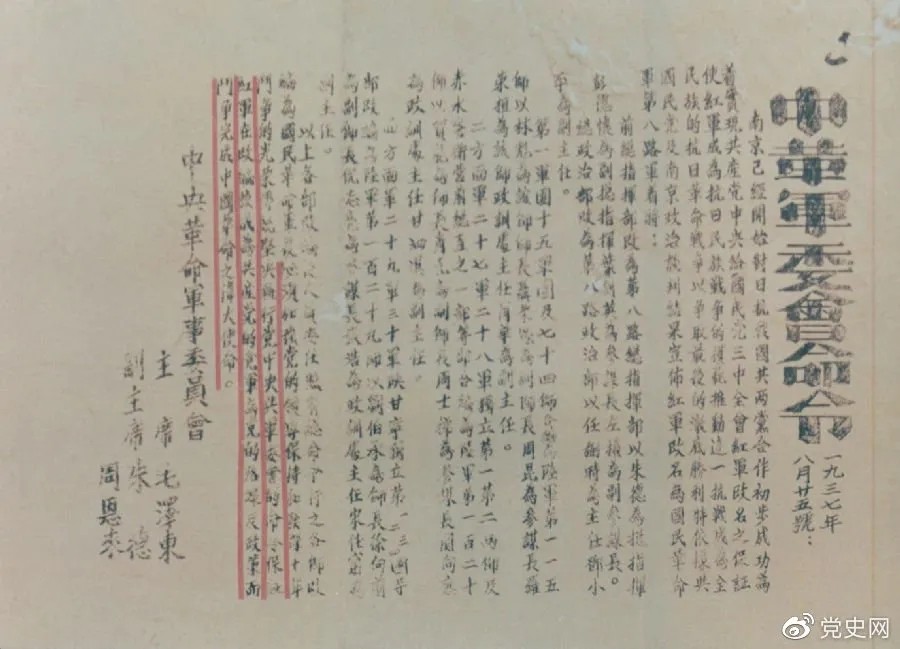 中革軍委會命令
一九三七年
八月廿五號：
南京已經開始對日抗戰國共兩黨合作初步成功為
着實現共產党中央給國民党三中全會紅軍改名之保証
使紅軍成為抗日民族戰爭的模範推動這一抗戰成為全
民族的抗日革命戰爭以爭取最後的澈底勝利特依據與
國民党及南京政治談判結果宣佈紅軍改名為國民革命
軍第八路軍着將：
前總指揮部改為第八路總指揮部以朱德為總指揮
彭德懷為副總指揮葉劍英為參謀長左權為副參謀長。
總政治部改為第八路政治部以任弼時為主任鄧小
平為副主任。
第一軍團十五軍團及七十四師 為陸軍第一一五
師以林彪為該師師長聶榮臻為副師長周昆為參謀長羅
榮桓為該師政訓處主任蕭華為副主任。
二方面軍二十七軍二十八軍獨立第一第二兩師及
赤水 總直之一部等部合編為陸軍第一百二十
師以賀龍為師長蕭克為副師長周士 為參謀長関向應
為政訓處主任甘泗淇為副主任。
四方面軍二十九軍三十軍陝甘寧獨立第一二三四
部改編為陸軍第一百二十九師以劉伯承為師長徐向前
為副師長倪志亮為參謀長張浩為政訓處主任宋任窮為
副主任。
以上各部改 命令行之各部改
編為國民革命軍後必須加強党的領導保持 十年
鬥爭的光榮 堅決執行党中央與軍委會的命令保
紅軍在改編後成為共產党的党軍為党的 政策而
鬥爭完成中國革命之偉大使命。
中央革命軍事委員會
主席毛澤東
副主席朱德
周恩来
党史网